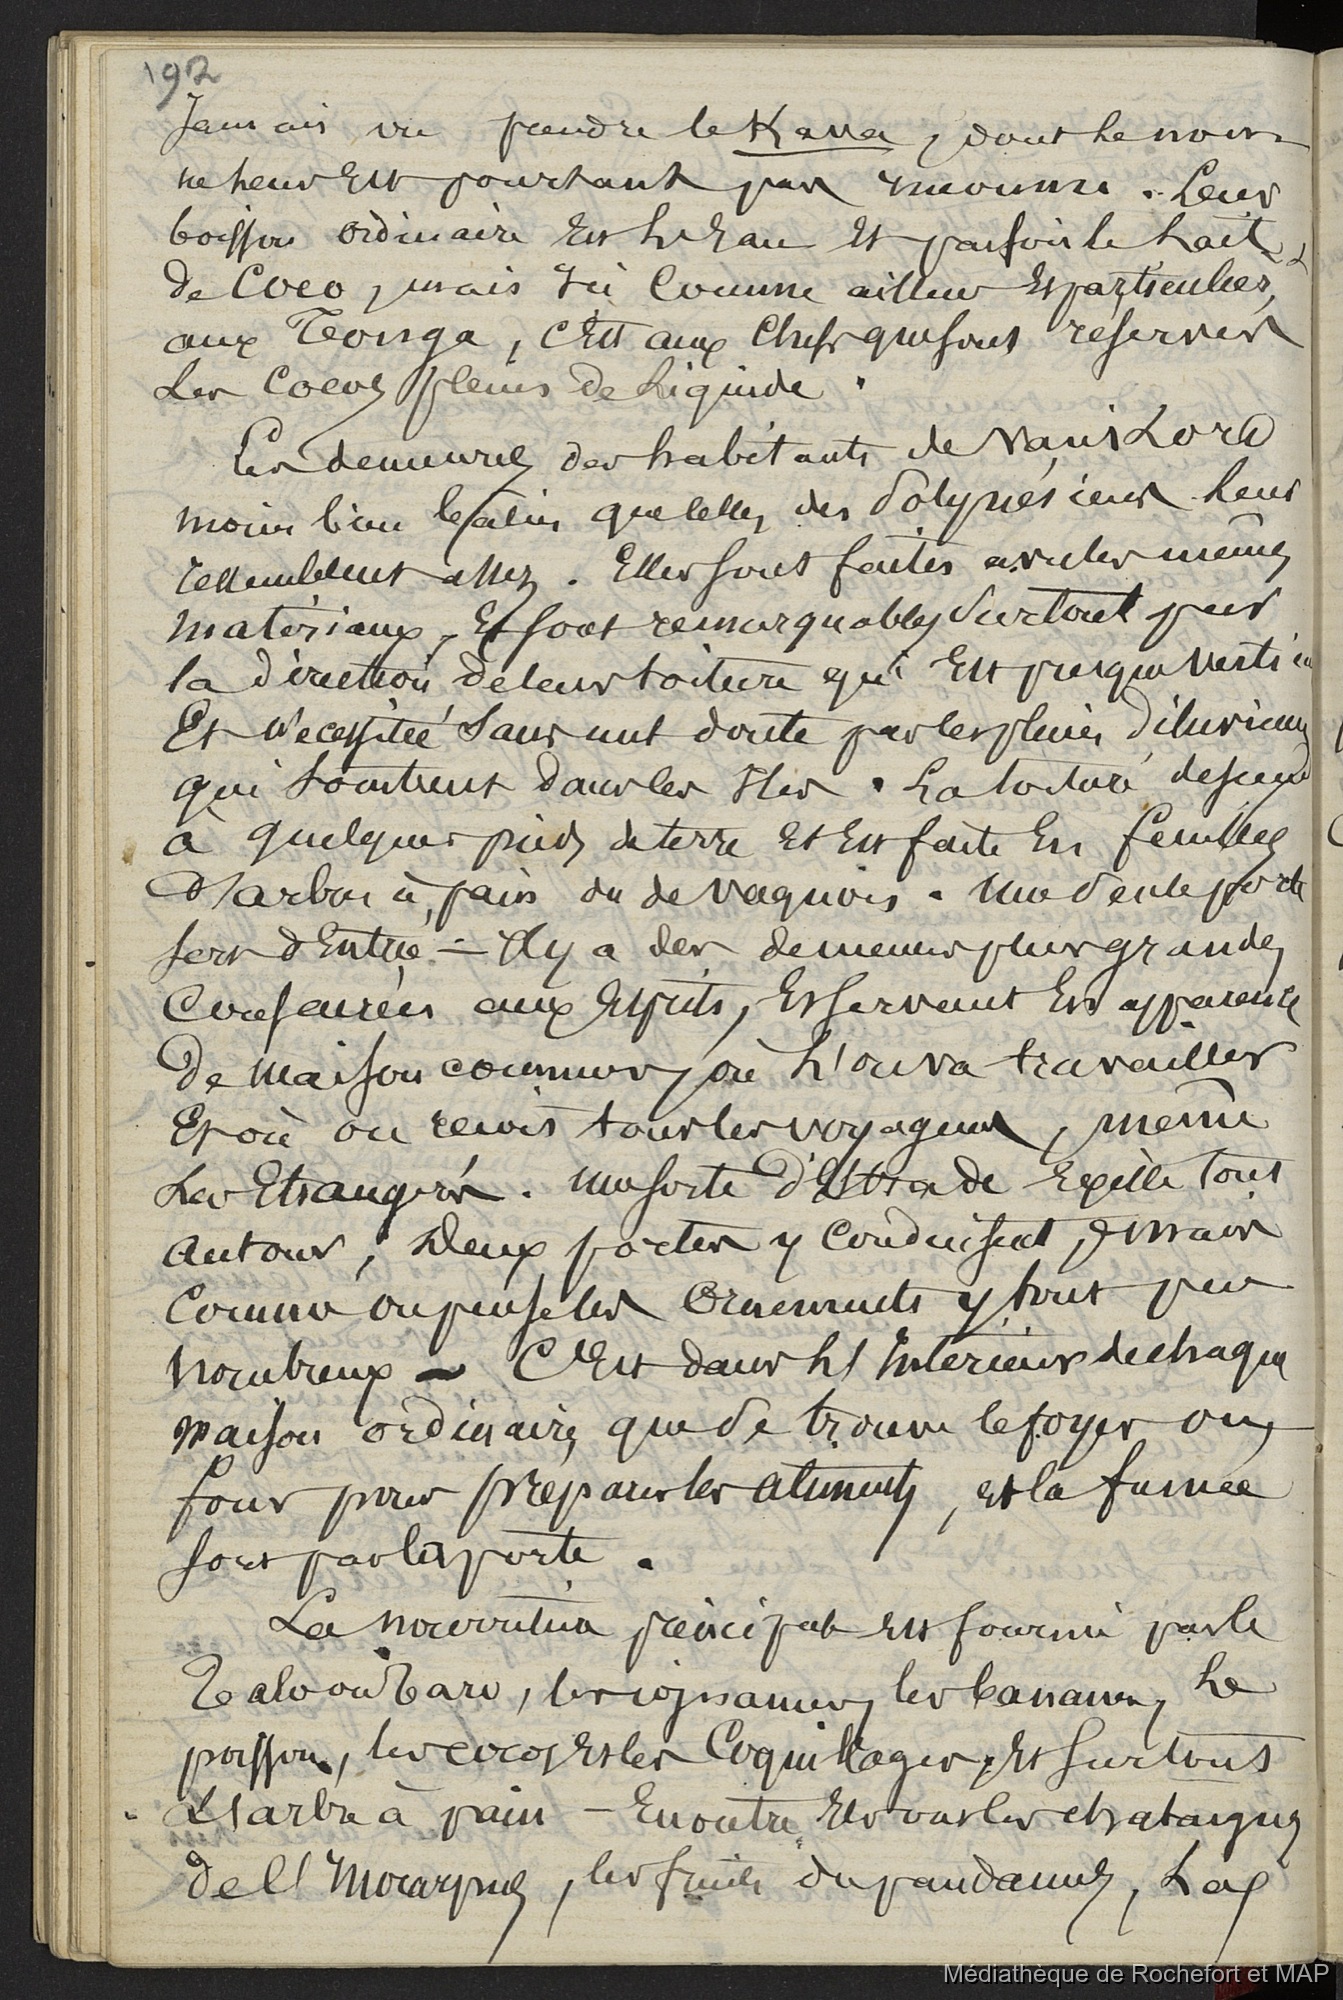 192
Jamais vu prendre le Kava, dont le nom
ne leur est pourtant pas inconnu. Leur
boisson ordinaire est l'eau et parfois le lait
de Coco, mais ici comme ailleurs et particulier
aux Tonga, c'est aux Chefs que sont réservés
les Cocos pleins de liquide.
Les demeures des habitants de Vanikoro
moins bien bâties que celles des Polynésiens leur
ressemblent assez. Elles sont faites avec les mêmes
matériaux, et sont remarquables surtout par
la direction de leur toiture qui est presque vertic
Et nécessitée sans nul doute par les pluies diluviennes
qui tombent dans les Iles. La toiture descend
à quelques pieds de terre et est faite en feuilles
d'arbre à pain ou de vaquois. Une seule porte
sert d'entrée - Il y a des demeures plus grandes
Consacrées aux Esprits, et servant en apparence
de maison commune, où l'on va travailler
Et où on reçoit tous les voyageurs, même
les Etrangers. Une sorte d'Estrade existe tout
autour, deux portes y conduisent, mais
comme on pense les ornements y sont peu
nombreux - C'est dans l'Intérieur de chaque
maison ordinaire que se trouve le foyer ou
four pour préparer les aliments, et la fumée
sort par la porte.
La nourriture principale est fournie par le
Talo ou Taro, les ignames, les bananes, le
poisson, les cocos et les Coquillages, et surtout
L'arbre à pain - En outre ils ont les chataignes
de l', les fruits du pandanus, Les